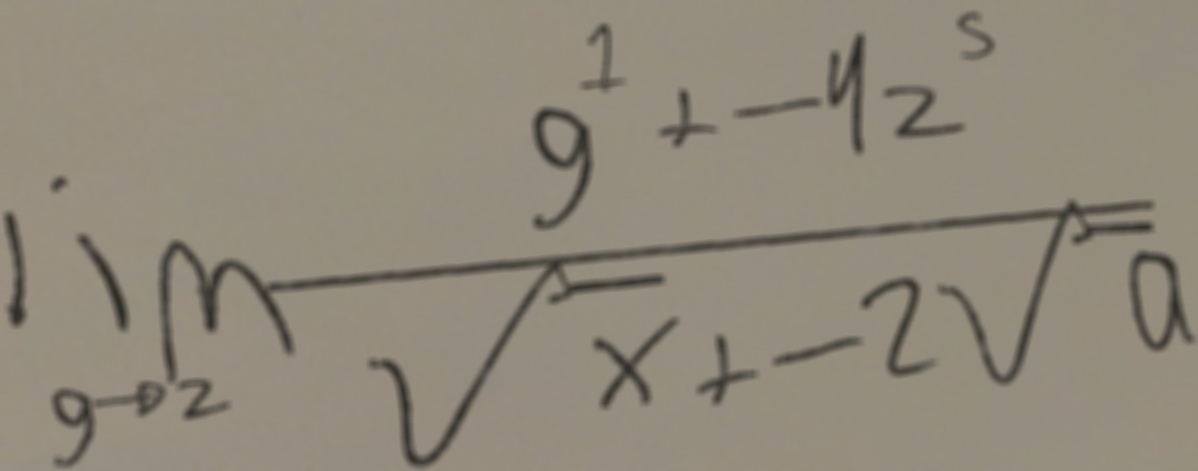 \lim_{g \to 2} \frac{g^1 + -4z^s}{\sqrt{x} + -2\sqrt{a}}